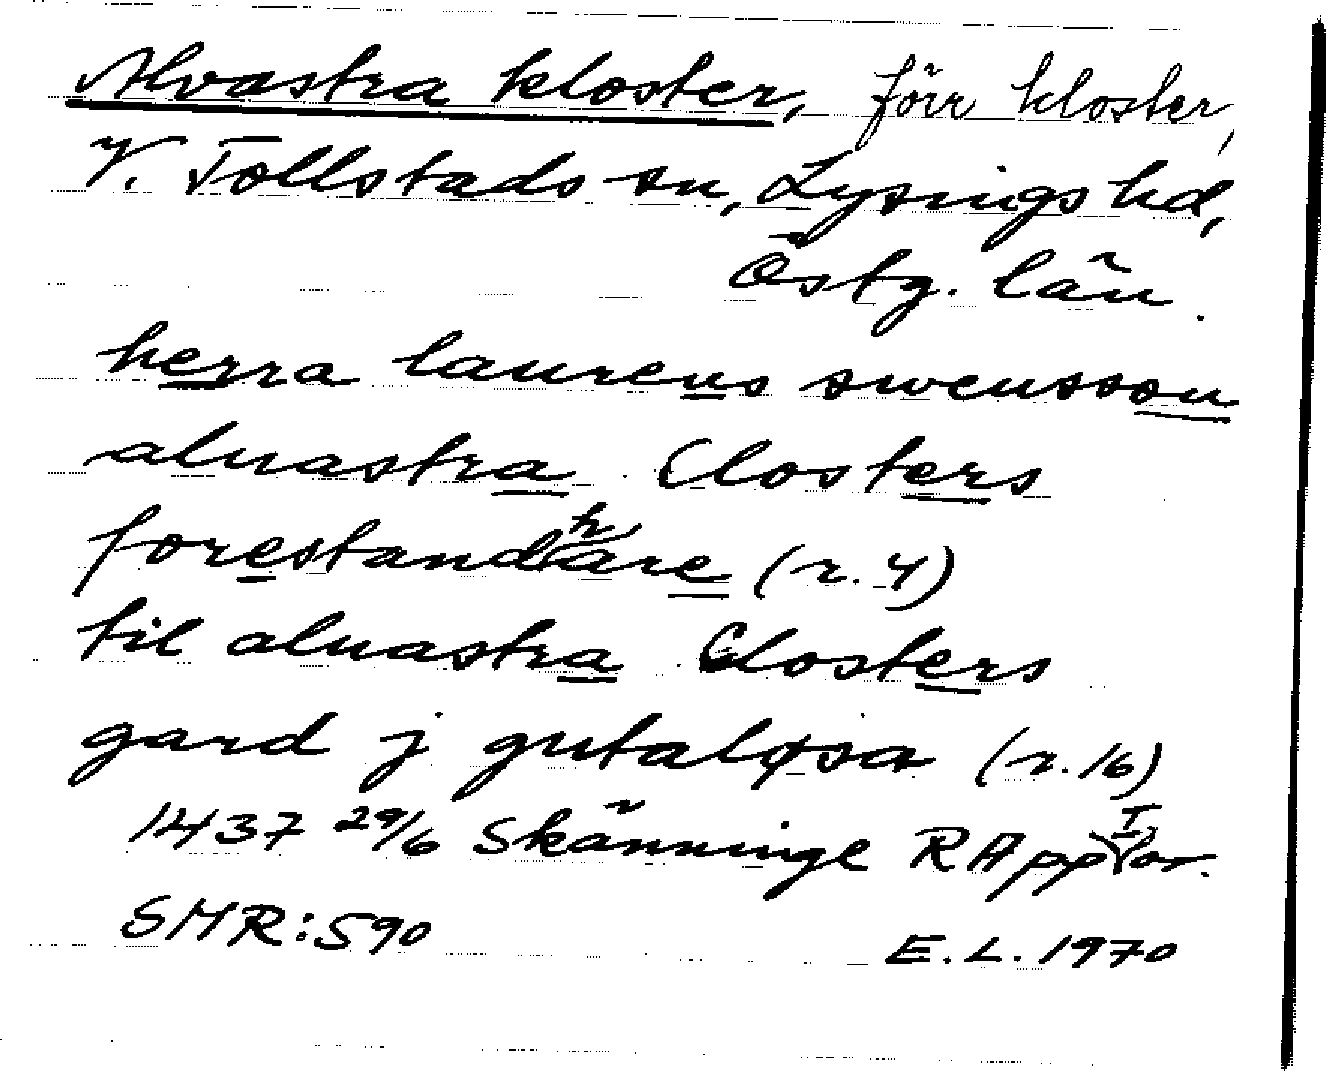 Alvastra kloster, förr kloster,
V. Tollstads sn, Lysings hd,
Östg. län.
herra laurens swensson
aluastra Closters
forestandare (r. 4)
til aluastra Closters
gard j gutaløsa (r. 16)
1437 29/6 Skänninge RApp I or.
SMR: 590 E. L. 1970